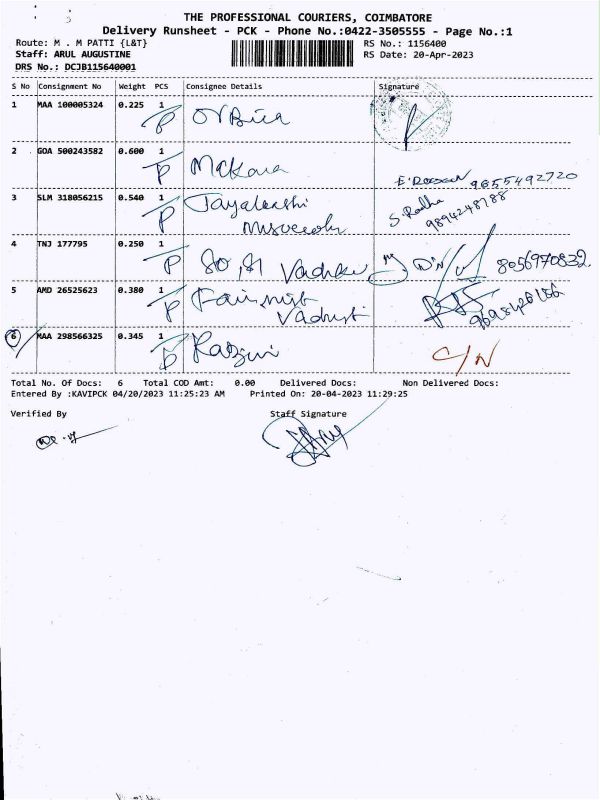 THE PROFESSIONAL COURIERS, COIMBATORE
Delivery Runsheet - PCK - Phone No.:0422-3505555 - Page No.:1
Route: M . M PATTI {L&T} RS No.: 1156400
Staff: ARUL AUGUSTINE RS Date: 20-Apr-2023
DRS No.: DCJB115640001
S No Consignment No Weight PCS Consignee Details Signature
1 MAA 100005324 0.225 1
P
2 GOA 500243582 0.600 1
P 9655492720
3 SLM 318056215 0.540 1 S. Radha
P 9894248788
4 TNJ 177795 0.250 1
P 8056970832
5 AMD 26525623 0.380 1
P
6 MAA 298566325 0.345 1
P C/N
Total No. Of Docs: 6 Total COD Amt: 0.00 Delivered Docs: Non Delivered Docs:
Entered By :KAVIPCK 04/20/2023 11:25:23 AM Printed On: 20-04-2023 11:29:25
Verified By Staff Signature